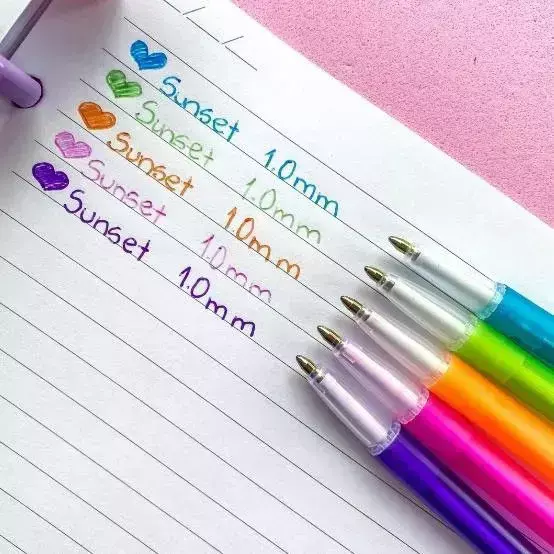 Sunset 1.0mm
Sunset 1.0mm
Sunset 1.0mm
Sunset 1.0mm
Sunset 1.0mm